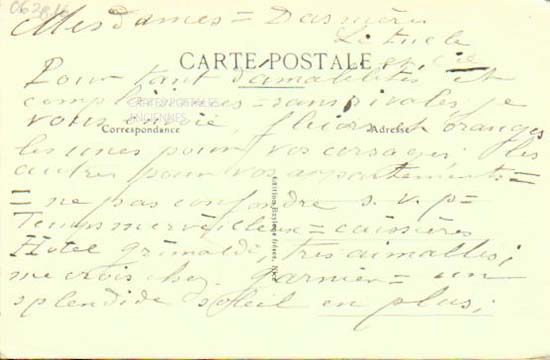 062816
Mesdames = Dasnières
CARTE POSTALE
et Cie
Pour tant d'amabilités et
complaisances = sans rivales, je
CARTES POSTALES
ANCIENNES
vous envoie, fleurs d'oranges
Correspondance
Adresse
les unes pour vos corsages; les
autres pour vos appartements =
= ne pas confondre s. v. p =
Temps merveilleux = caissières
Hotel Grimaldi, très aimables;
me crois chez Garnier = un
splendide soleil en plus;